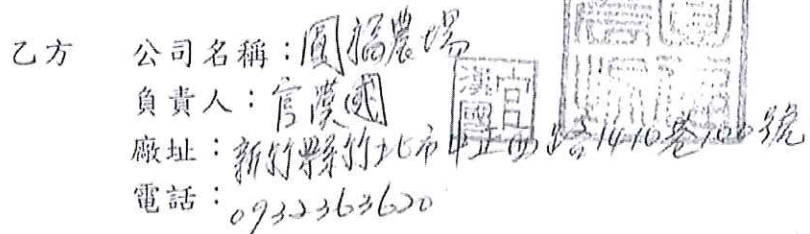 乙方 公司名稱：圓福農場
負責人：官漢國
廠址：新竹縣竹北市中正西路1410巷100號
電話：0932363620
官漢國